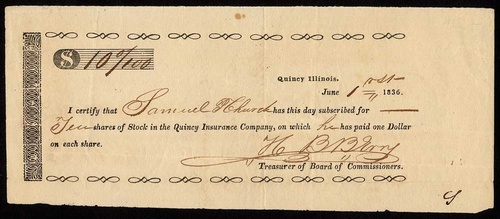 $ 10 0/100
Quincy Illinois.
June 1st 1836.
I certify that Samuel Church has this day subscribed for
Ten shares of Stock in the Quincy Insurance Company, on which he has paid one Dollar
on each share.
H
Treasurer of Board of Commissioners.